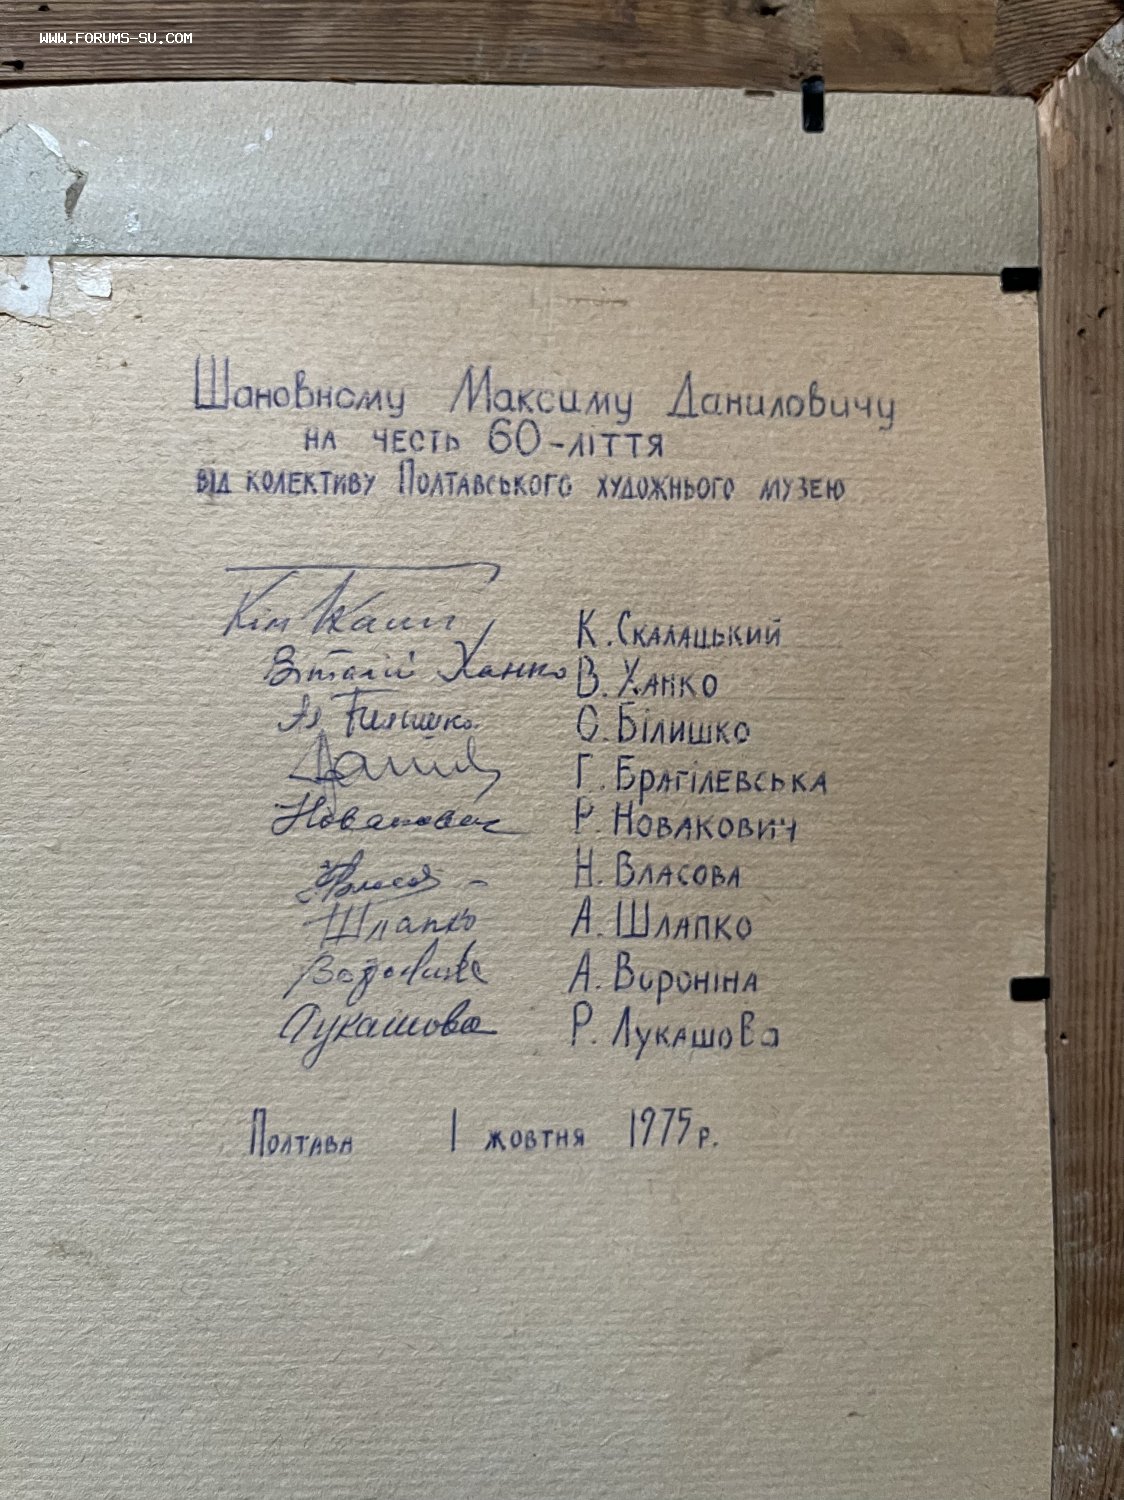 WWW.FORUMS-SU.COM
Шановному Максиму Даниловичу
на честь 60-ліття
від колективу Полтавського художнього музею
Кім К. Скалацький
Віталій Ханко В. Ханко
Білишко О. Білишко
Г. Брагілевська
Новакович Р. Новакович
Власова Н. Власова
Шлапко А. Шлапко
А. Вороніна
Лукашова Р. Лукашова
Полтава 1 жовтня 1975 р.